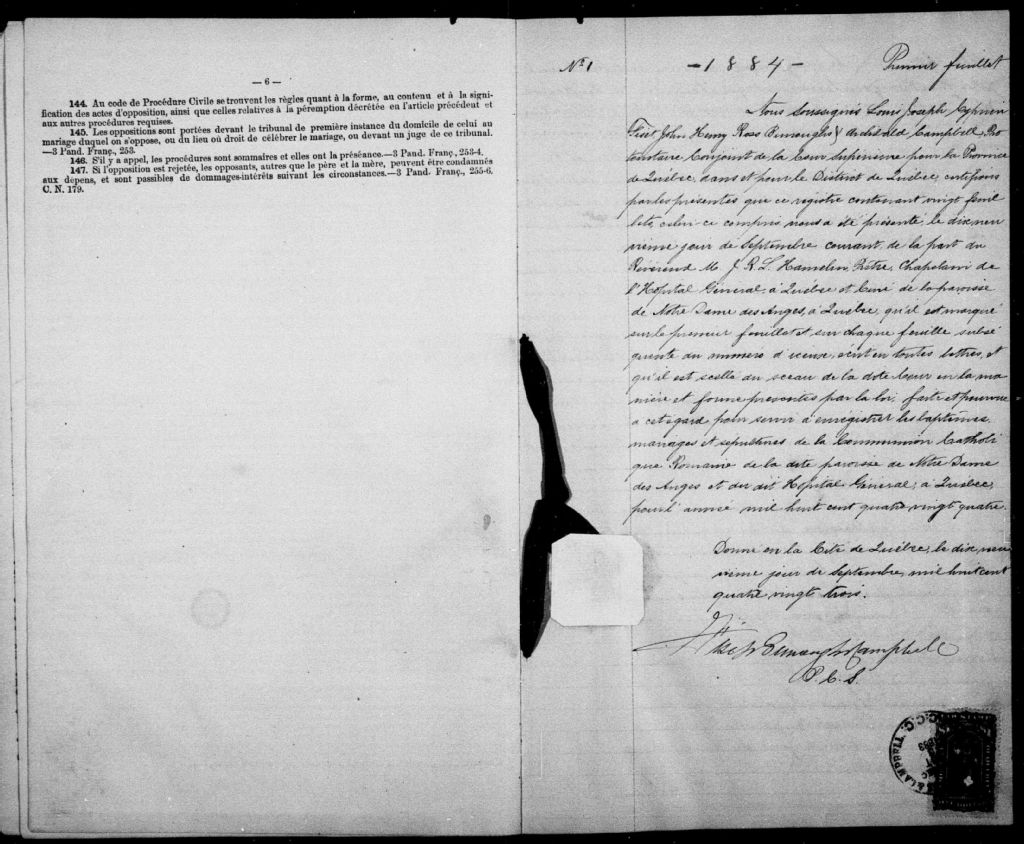 — 6 —
144. Au code de Procédure Civile se trouvent les règles quant à la forme, au contenu et à la signi-
fication des actes d'opposition, ainsi que celles relatives à la péremption décrétée en l'article précédent et
aux autres procédures requises.
145. Les oppositions sont portées devant le tribunal de première instance du domicile de celui au
mariage duquel on s'oppose, ou du lieu où droit de célébrer le mariage, ou devant un juge de ce tribunal.
—3 Pand. Franç., 253.
146. S'il y a appel, les procédures sont sommaires et elles ont la préséance.—3 Pand. Franç., 253-4.
147. Si l'opposition est rejetée, les opposants, autres que le père et la mère, peuvent être condamnés
aux dépens, et sont passibles de dommages-intérêts suivant les circonstances.—3 Pand. Franç., 255-6.
C. N. 179.
No 1 -1884- Premier feuillet
Nous soussignés Louis Joseph Cyprien
Fiset, John Henry Ross Burroughs & Archibald Campbell, Pro
tonotaire Conjoint de la Cour Supérieure pour la Province
de Québec, dans et pour le District de Québec certifions
par les présentes que ce registre contenant vingt feuil
lets, celui-ci compris nous a été présenté le dix neu
vième jour de Septembre courant, de la part du
Révérend M. J. R. L. Hamelin, Prêtre, Chapelain de
l'Hopital Général, à Québec et Curé de la paroisse
de Notre Dame des Anges, à Québec, qu'il est marqué
sur le premier feuillet et sur chaque feuille subsé
quente du numéro d'iceux, écrit en toutes lettres, et
qu'il est scellé du sceau de la dite Cour en la ma
nière et forme prescrites par la loi, faite et pourvue
a cet egard pour servir à enregistrer les baptêmes,
mariages et sépultures de la Communion Catholi
que Romaine de la dite paroisse de Notre Dame
des Anges et du dit Hopital Général, à Québec,
pour l'année mil huit cent quatre vingt quatre.
Donné en la Cité de Québec, le dix neu
vième jour de Septembre, mil huit cent
quatre vingt trois.
Fiset Burroughs Campbell
P. C. S.
& CAMPBELL P.C.S.